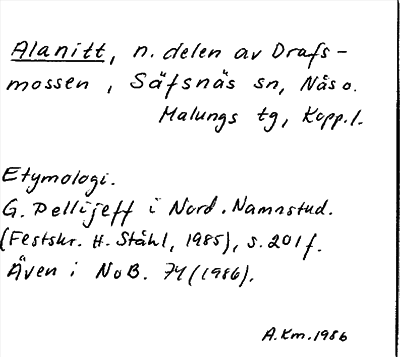 Alanitt, n. delen av Drafs-
mossen, Säfsnäs sn, Nås o.
Malungs tg, Kopp.l.
Etymologi.
G. Pellijeff i Nord. Namnstud.
(Festskr. H. Ståhl, 1985), s. 201 f.
Även i NoB. 74 (1986).
A.Km. 1986